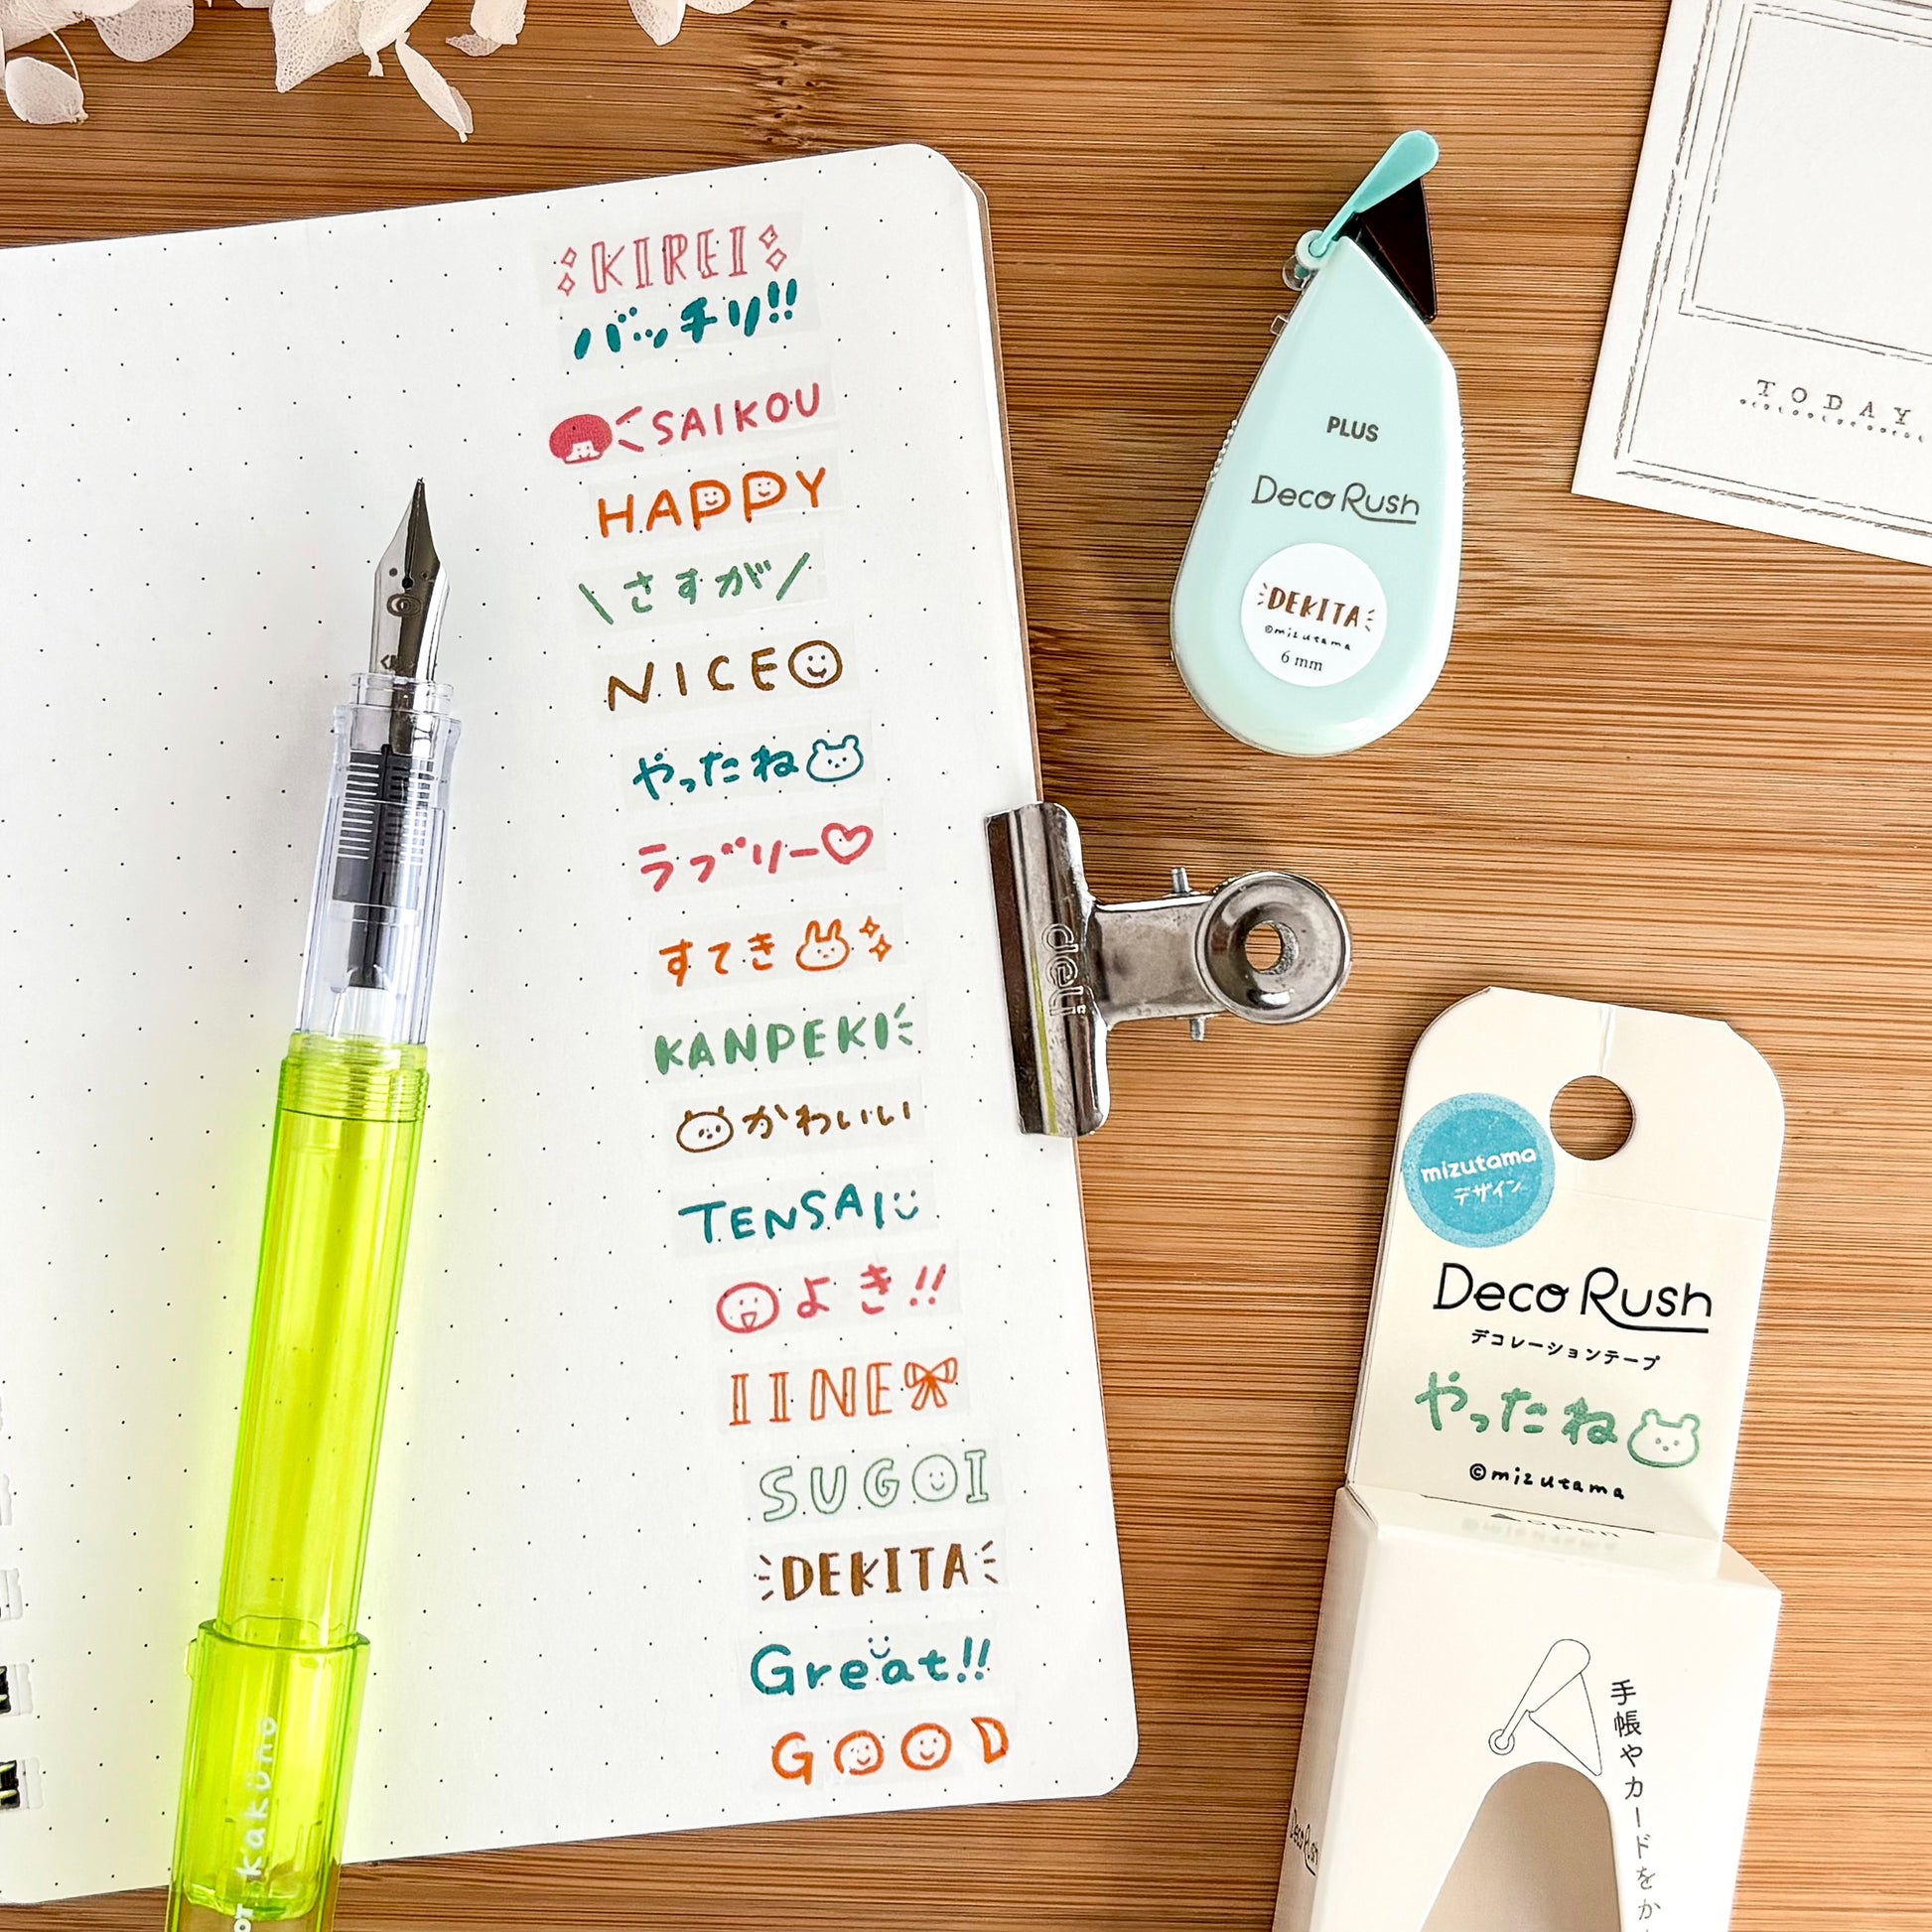 KIREI
バッチリ!!
SAIKOU
HAPPY
\さすが/
NICE
やったね
ラブリー♡
すてき
KANPEKI
かわいい
TENSAI
よき!!
IINE
SUGOI
DEKITA
Great!!
GOOD
kaküno
PLUS
Deco Rush
DEKITA
©mizutama
6 mm
deli
TODAY
mizutama
デザイン
Deco Rush
デコレーションテープ
やったね
©mizutama
open
手帳やカードをか
Deco Rush